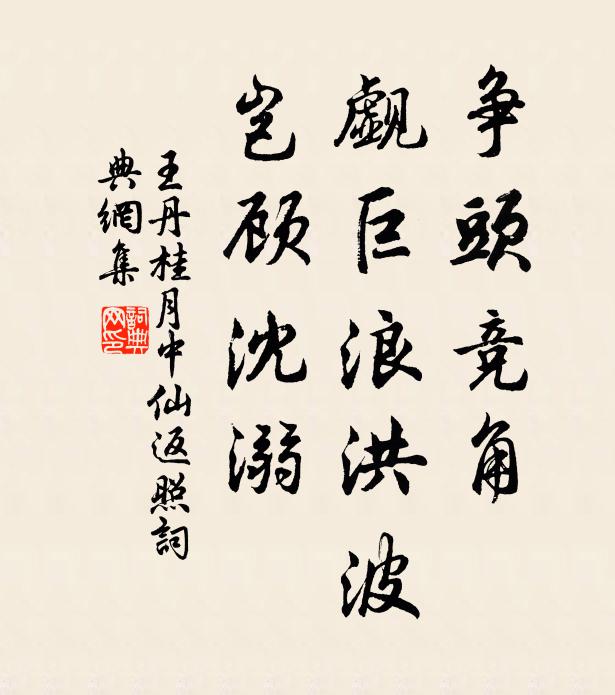 争頭竞角
觑巨浪洪波
岂顾沈溺
王丹桂月中仙返照詞
典網集
詞典网印